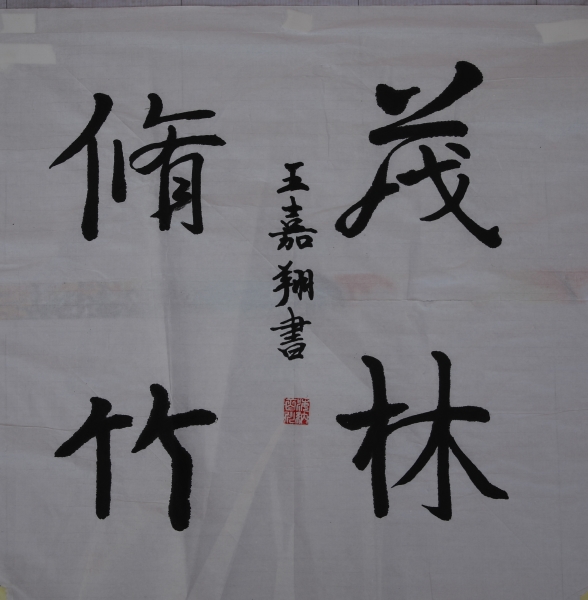 茂林
脩竹
王嘉翔書